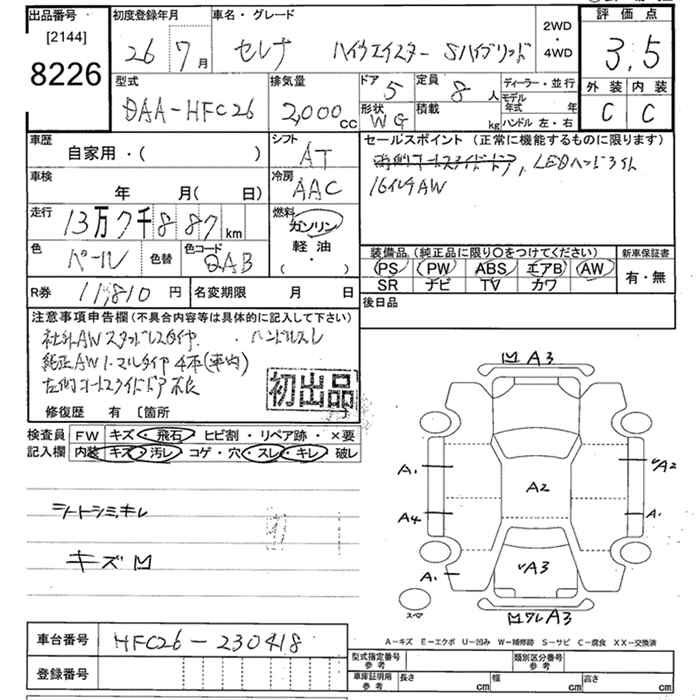 出品番号
[2144]
8226
初度登録年月
26 7月
車名・グレード
セレナ ハイウエイスター Sハイブリッド
2WD
・
4WD
評価点
3.5
外装 内装
C C
型式
DAA-HFC26
排気量
2,000cc
ドア
5
定員
8人
形状
WG
積載
kg
ディーラー・並行
モデル年式 年
ハンドル 左・右
車歴
自家用・( )
シフト
AT
車検
年 月(日)
冷房
AAC
走行
13万7千887km
燃料
ガソリン
軽油
( ・ )
色
パール
色替
色コード
QAB
セールスポイント (正常に機能するものに限ります)
両側オートスライドドア, LEDヘッドライト
16インチAW
装備品 (純正品に限り○をつけてください)
PS PW ABS エアB AW
SR ナビ TV カワ
新車保証書
有・無
R券
11,810円
名変期限 月 日
後日品
注意事項申告欄(不具合内容等は具体的に記入して下さい)
社外AWスタッドレスタイヤ. ・ハンドルスレ
純正AWノーマルタイヤ 4本(車内)
左側オートスライドドア不良
初出品
修復歴 有 〔箇所 〕
検査員
記入欄
FW キズ・飛石・ヒビ割・リペア跡・×要
内装 キズ・汚レ・コゲ・穴・スレ・キレ・破レ
シートシミキレ
キズM
M A3
A1
A2
A2
A4
A1
A1
A3
スペア
A3
A-キズ E-エクボ U-凹み W-補修跡 S-サビ C-腐食 XX-交換済
車台番号
HFC26-230418
登録番号
型式指定番号
参考
類別区分番号
参考
車庫証明用
参考
長さ cm
幅 cm
高さ cm